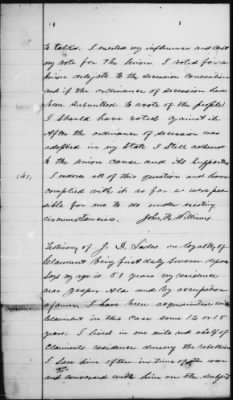 to talks. I exerted my influence and cast
my vote for the Union. I voted for a
Union delegate to the secession convention
and if the ordinance of secession had
been submitted to a vote of the people
I should have voted against it.
After the ordinance of secession was
adopted in my State I still adhered
to the Union cause and its supporters
I understand all of this question and have
complied with it as far as was pos-
sible for me to do under existing
circumstances. John H. Williams
Testimony of J. D. on loyalty of
Claimant Being first duly sworn upon
says my age is 51 years my residence
near Jasper Ala and by occupation
a farmer. I have been acquainted with
Claimant in this case some 12 or 15
years. I lived in one mile and a half of
Claimants residence during the rebellion
I saw him often in time of the war
and conversed with him on the subject